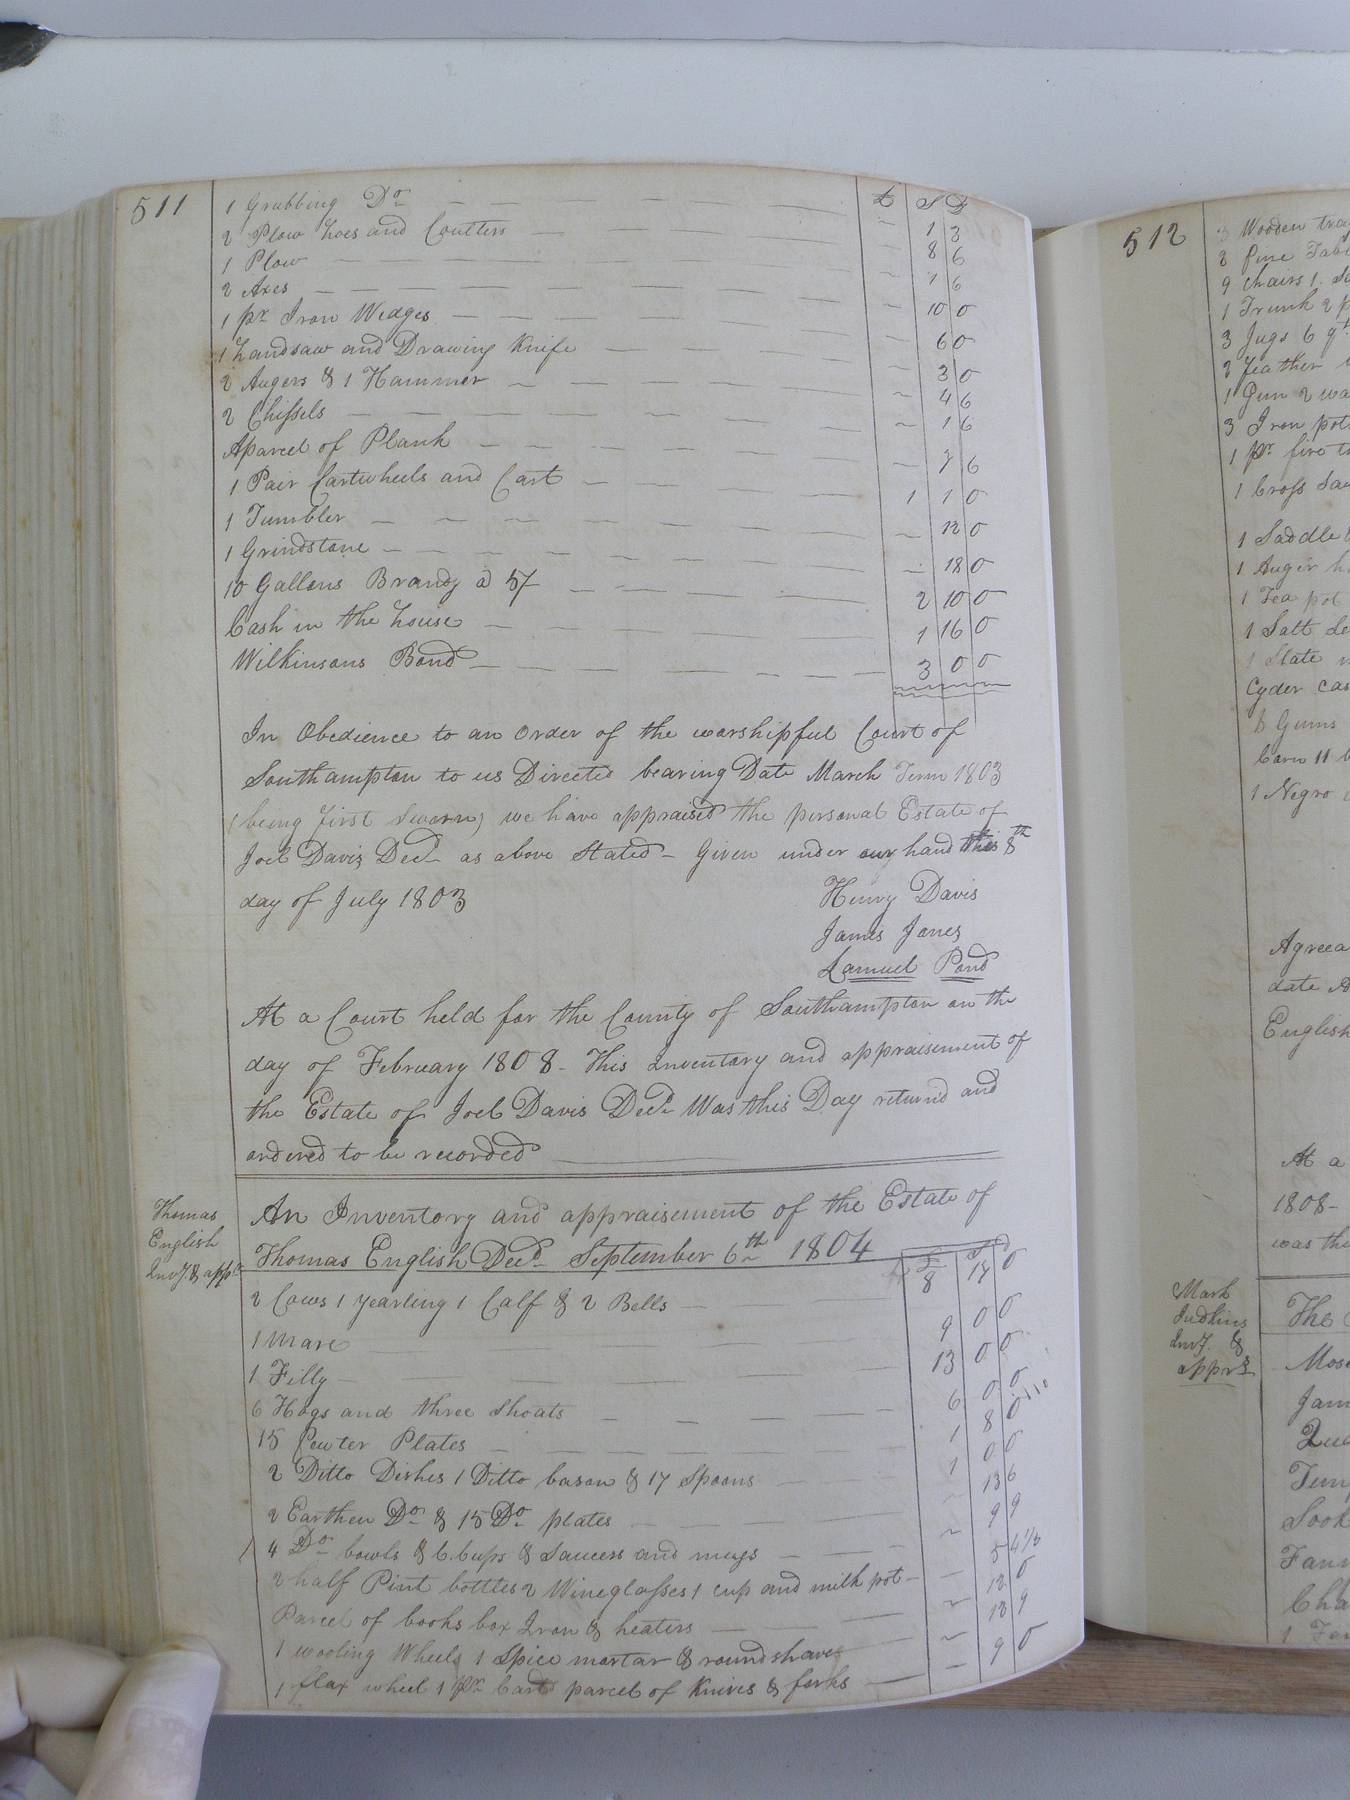 511
£ S D
1 Grubbing Do — 1 3
2 Plow hoes and Coulters — 8 6
1 Plow — 7 6
2 Axes — 10 0
1 pr Iron Wedges — 6 0
1 handsaw and Drawing Knife — 3 0
2 Augers & 1 Hammer — 4 6
2 Chissels — 1 6
A parcel of Plank — 7 6
1 Pair Cartwheels and Cart — 1 1 0
1 Tumbler — 12 0
1 Grindstone — 18 0
10 Gallons Brandy @ 5/ — 2 10 0
Cash in the house — 1 16 0
Wilkinsons Bond — 3 0 0
In Obedience to an order of the worshipful Court of
Southampton to us Directed bearing Date March Term 1803
(being first sworn) we have appraised the personal Estate of
Joel Davis Decd as above Stated — Given under our hand this 8th
day of July 1803
Henry Davis
James Jones
Lamuel Pond
At a Court held for the County of Southampton on the
day of February 1808 — This Inventory and appraisement of
the Estate of Joel Davis Decd Was this Day returnd and
ordered to be recorded
Thomas
English
Invy. & appt
An Inventory and appraisement of the Estate of
Thomas English Decd September 6th 1804
£ S D
2 Cows 1 yearling 1 Calf & 2 Bells — 8 14 0
1 Mare — 9 0 0
1 Filly — 13 0 0
6 Hogs and three Shoats — 6 0 0
15 Pewter Plates — 1 8 0
2 Ditto Dishes 1 Ditto bason & 17 Spoons — 1 0 0
2 Earthen Do & 15 Do plates — 13 6
4 Do bowls & 6 Cups & Saucers and mugs — 9 9
2 half Pint bottles 2 Wineglasses 1 cup and milk pot — 5 4 1/2
Parcel of books box Iron & heaters — 12 0
1 wooling Wheels 1 Spice mortar & roundshaves — 18 9
1 flax wheel 1 pr Cards parcel of Knives & forks — 9 0
512
3 Wooden
2 pine
9 Chairs 1
1 Trunk 2
3 Jugs 6
2 feather
1 Gun 2
3 Iron pots
1 pr fire
1 Cross
1 Saddle
1 Auger
1 Tea pot
1 Salt
1 Slate
Cyder
Gums
Corn 11
1 Negro
date
English
At a
1808 —
was
Mark
Judkins
Invy. &
apprt
The